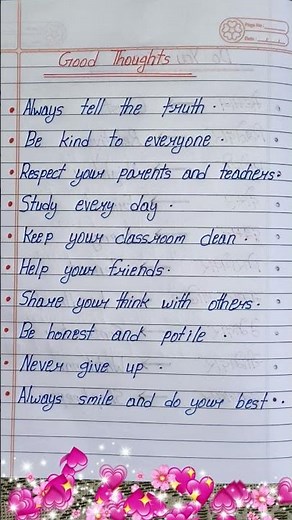 Good Thoughts
• Always tell the truth.
• Be kind to everyone.
• Respect your parents and teachers.
• Study every day.
• Keep your classroom clean.
• Help your friends.
• Share your think with others.
• Be honest and potile.
• Never give up.
• Always smile and do your best.